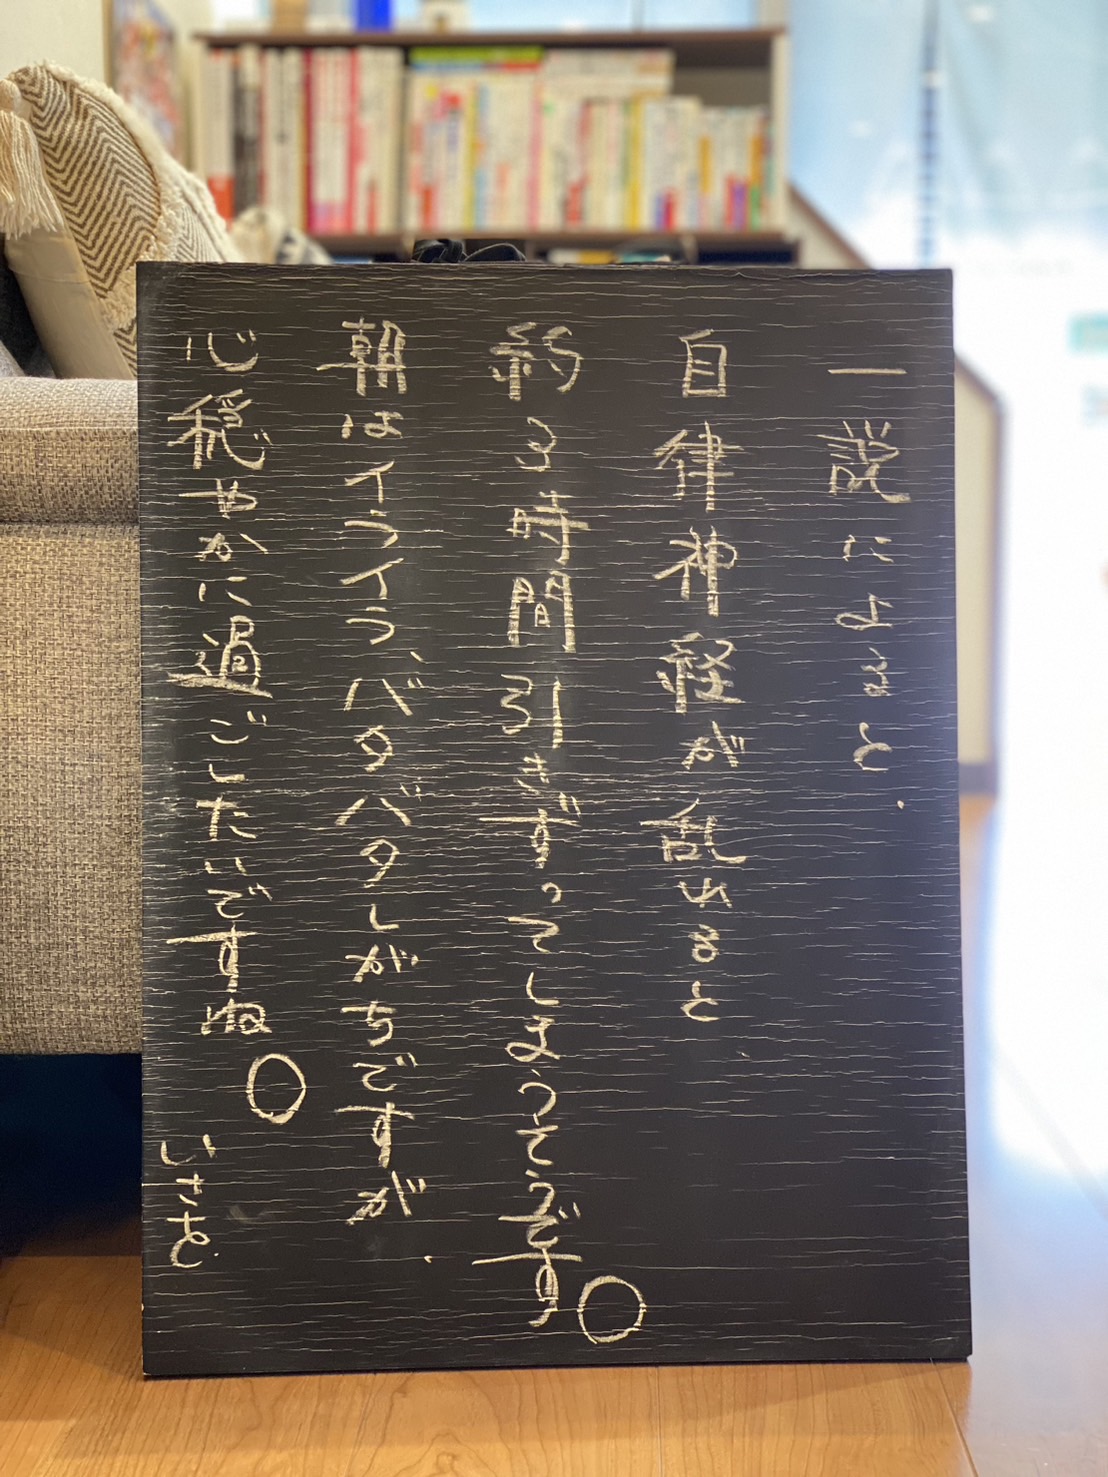 一説によると、
自律神経が乱れると
約3時間引きずってしまうそうです。
朝はイライラ、バタバタしがちですが、
心穏やかに過ごしたいですね。